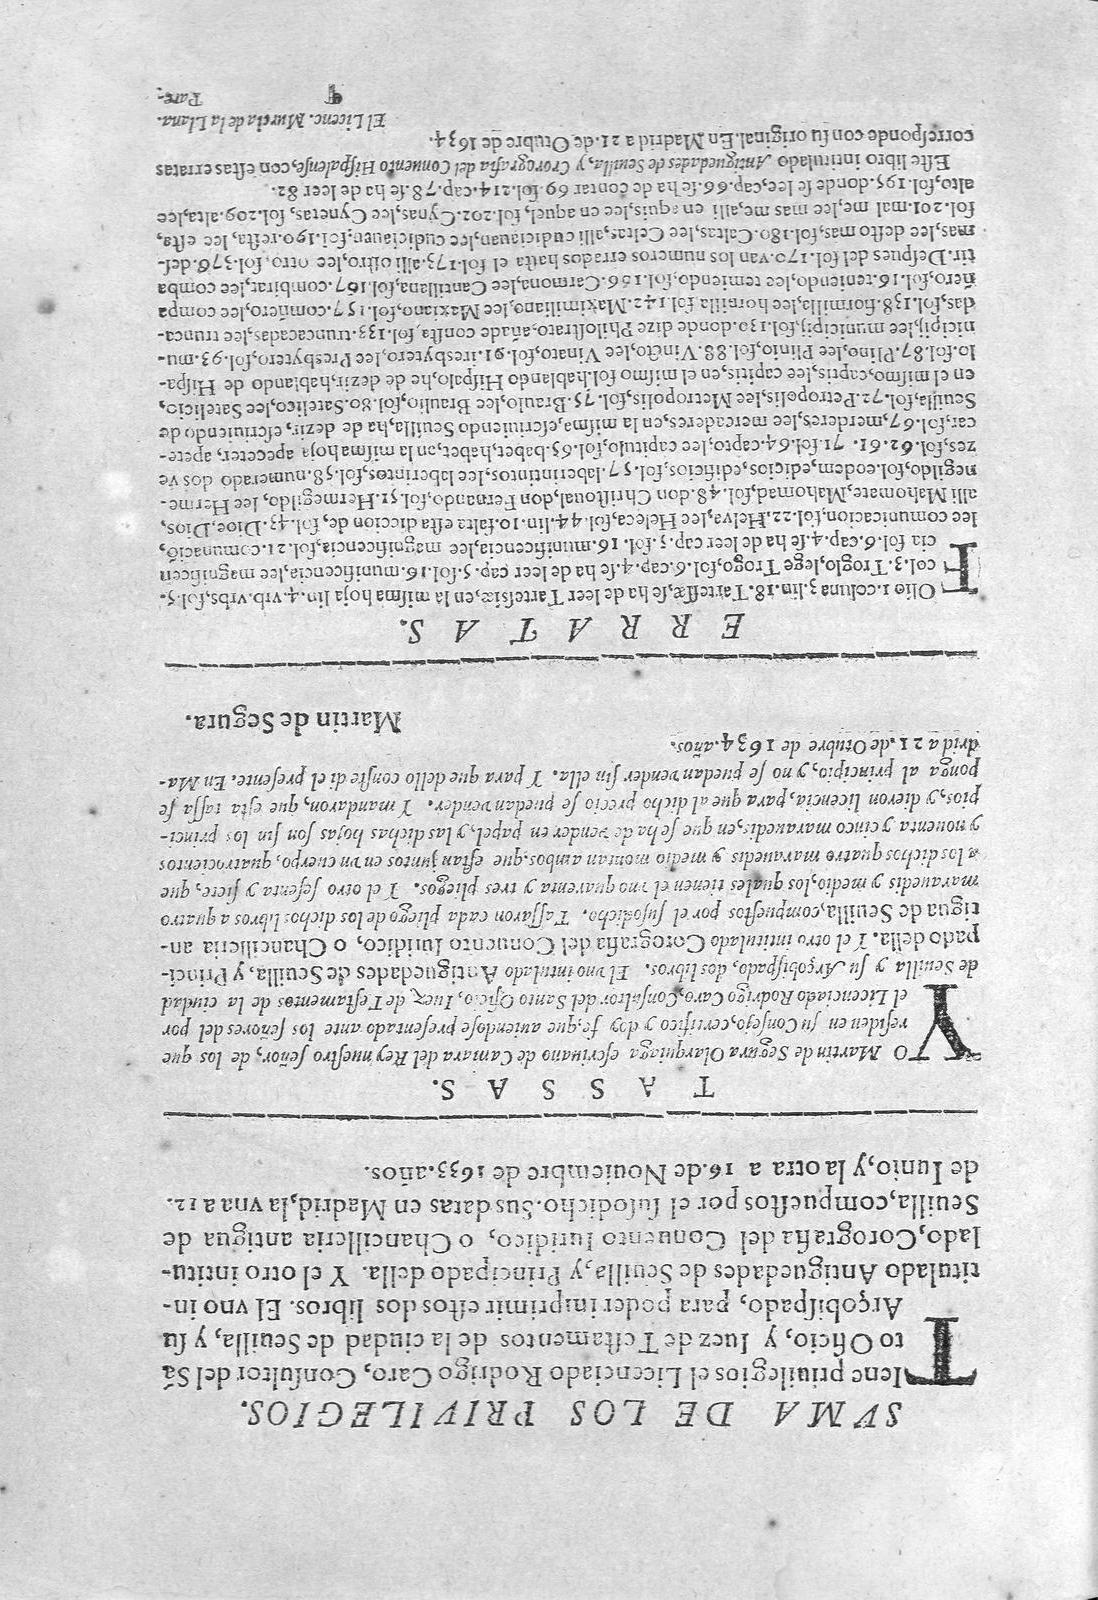 SVMA DE LOS PRIVILEGIOS.
TIene priuilegios el Licenciado Rodrigo Caro, Consultor del Sã
to Oficio, y Iuez de Testamentos de la ciudad de Seuilla, y su
Arçobispado, para poder imprimir estos dos libros. El vno in-
titulado Antiguedades de Seuilla, y Principado della. Y el otro intitu-
lado, Corografia del Conuento Iuridico, o Chancilleria antigua de
Seuilla, compuestos por el susodicho. Sus datas en Madrid, la vna a 12.
de Iunio, y la otra a 16. de Nouiembre de 1633. años.
TASSAS.
YO Martin de Segura Olarquiaga escriuano de Camara del Rey nuestro señor, de los que
residen en su Consejo, certifico y doy fe, que auiendose presentado ante los señores del por
el Licenciado Rodrigo Caro, Consultor del Santo Oficio, Iuez de Testamentos de la ciudad
de Seuilla y su Arçobispado, dos libros. El vno intitulado Antiguedades de Seuilla, y Princi-
pado della. Y el otro intitulado Corografia del Conuento Iuridico, o Chancilleria an-
tigua de Seuilla, compuestos por el susodicho. Tassaron cada pliego de los dichos libros a quatro
marauedis y medio, los quales tienen el vno quarenta y tres pliegos. Y el otro sesenta y siete, que
a los dichos quatro marauedis y medio montan ambos, que estan juntos en vn cuerpo, quatrocientos
y nouenta y cinco marauedis, en que se ha de vender en papel, y las dichas hojas son sin los princi-
pios, y dieron licencia, para que al dicho precio se puedan vender. Y mandaron, que esta tassa se
ponga al principio, y no se puedan vender sin ella. Y para que dello conste di el presente. En Ma-
drid a 21. de Otubre de 1634. años.
Martin de Segura.
ERRATAS.
FOlio 1. coluna 3. lin. 18. Tartessæ, se ha de leer Tartesiæ, en la misma hoja lin. 4. vrb. vrbs, fol. 5.
col. 3. Troglo, lege Trogo, fol. 6. cap. 4. se ha de leer cap. 5. fol. 16. munificencia, lee magnificen
cia fol. 6. cap. 4. se ha de leer cap. 5. fol. 16. munificencia, lee magnificencia, fol. 21. comunació,
lee comunicacion, fol. 22. Helva, lee Heleca, fol. 44. lin. 10. falta esta diccion de, fol. 43. Dioe, Dios,
alli Mahomate, Mahomad, fol. 48. don Christoual, don Fernando, fol. 51. Hermegildo, lee Herme-
negildo, fol. eodem, edicios, edificios, fol. 57. laberintintos, lee laberintos, fol. 58. numerado dos ve
zes, fol. 62. 61. 71. fol. 64. capto, lee capitulo, fol. 65. babet, habet, en la misma hoja apeceter, apete-
cer, fol. 67, merderes, lee mercaderes, en la misma, escriuiendo Seuilla, ha de dezir, escriuiendo de
Seuilla, fol. 72. Petropolis, lee Metropolis, fol. 75. Braulo, lee Braulio, fol. 80. Satelico, lee Satelicio,
en el mismo, captis, lee capitis, en el mismo fol. hablando Hispalo, he de dezir, hablando de Hispa-
lo. fol. 87. Plino, lee Plinio, fol. 88. Vincto, lee Vinato, fol. 91. iresbytero, lee Presbytero, fol. 93. mu-
nicipij, lee municipij, fol. 130. donde dize Philostrato, añade consta, fol. 133. truncacadas, lee trunca-
das, fol. 138. hormilla, lee hornilla fol. 142. Maximiliano, lee Maxiano, fol. 157. comñero, lee compa
ñero, fol. 16. teniendo, lee temiendo, fol. 156. Carmona, lee Cantillana, fol. 167. combirat, lee comba
tir. Despues del fol. 170. van los numeros errados hasta el fol. 173. alli ostro, lee otro, fol. 376. des-
mas, lee desto mas, fol. 180. Caltas, lee Celtas, alli cudiciauan, lee cudiciauan, fol. 190. resta, lee esta,
fol. 201. mal me, lee mas me, alli en aquis, lee en aquel, fol. 202. Cynas, lee Cynetas, fol. 209. alta, lee
alto, fol. 195. donde se lee, cap. 66. se ha de contar 69. fol. 214. cap. 78. se ha de leer 82.
Este libro intitulado Antiguedades de Seuilla, y Corografia del Conuento Hispalense, con estas erratas
corresponde con su original. En Madrid a 21. de Otubre de 1634.
El Licenc. Murcia de la Llana.
¶ Pare-